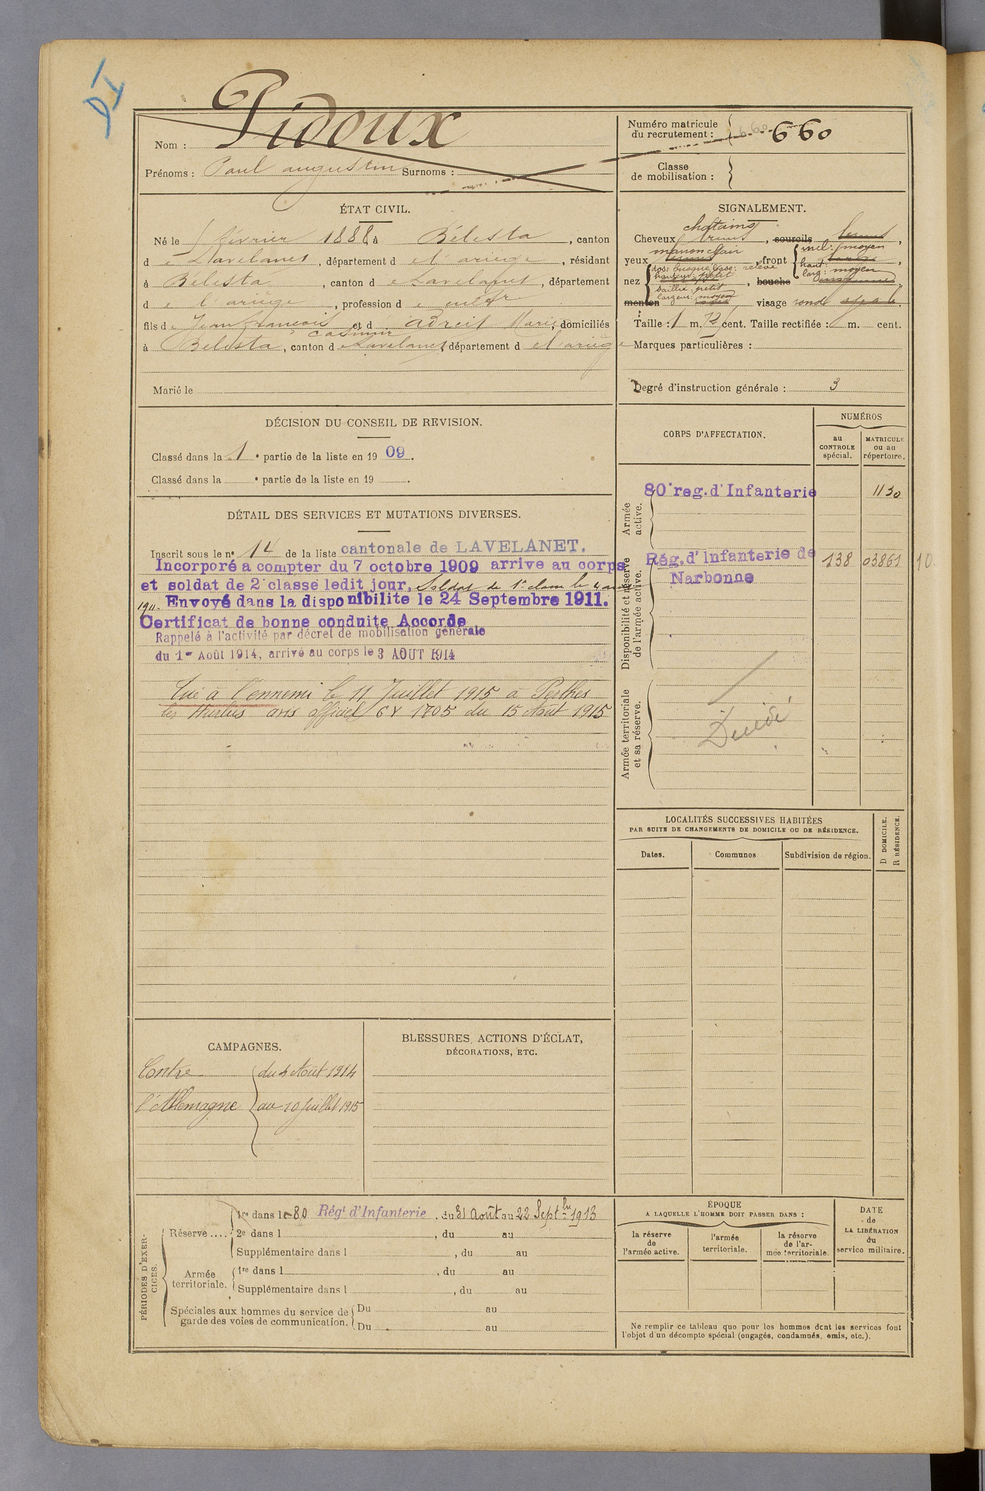 Pidoux
Nom :
Prénoms : Paul augustin Surnoms :
Numéro matricule
du recrutement : 660
Classe
de mobilisation :
ÉTAT CIVIL.
Né le février 1888 à Bélesta, canton
de Lavelanet, département de l'ariège, résidant
à Bélesta, canton de Lavelanet, département
de l'ariège, profession de cult
fils de Jean francois casimir et d adroit Marie domiciliés
à Bélesta, canton de Lavelanet, département de l'ariège
Marié le
SIGNALEMENT.
chatains
Cheveux bruns, sourcils bruns,
marron clair
yeux, front incl: moyen
haut:
larg: moyen
nez dos: busqué base: relevé
hauteur: petit
saillie: petit
largeur: moyen
bouche
menton visage ronde ovale
Taille : 1 m. 72 cent. Taille rectifiée : m. cent.
Marques particulières :
Degré d'instruction générale : 3
DÉCISION DU CONSEIL DE REVISION.
Classé dans la 1e partie de la liste en 1909.
Classé dans la e partie de la liste en 19 .
CORPS D'AFFECTATION.
NUMÉROS
au
CONTROLE
spécial.
MATRICULE
ou au
répertoire.
Armée
active.
80e reg. d'Infanterie 1130
Disponibilité et réserve
de l'armée active.
Rég. d'Infanterie de 138 03861 10
Narbonne
Armée territoriale
et sa réserve.
Décédé
DÉTAIL DES SERVICES ET MUTATIONS DIVERSES.
Inscrit sous le n° 14 de la liste cantonale de LAVELANET.
Incorporé a compter du 7 octobre 1909 arrive au corps
et soldat de 2e classe ledit jour. Soldat de 1e classe le 4
1911. Envoyé dans la disponibilite le 24 Septembre 1911.
Certificat de bonne conduite Accorde
Rappelé à l'activité par décret de mobilisation générale
du 1er Août 1914, arrivé au corps le 3 AOUT 1914
Tué à l'ennemi le 11 Juillet 1915 à Perthes
les Hurlus avis officiel 6Y 1705 du 15 Août 1915
LOCALITÉS SUCCESSIVES HABITÉES
PAR SUITE DE CHANGEMENTS DE DOMICILE OU DE RÉSIDENCE.
Dates.
Communes
Subdivision de région.
D DOMICILE.
R RÉSIDENCE.
CAMPAGNES.
Contre du 4 Août 1914
l'Allemagne au 10 Juillet 1915
BLESSURES, ACTIONS D'ÉCLAT,
DÉCORATIONS, ETC.
PÉRIODES D'EXER-
CICES.
Réserve ....
1re dans le 80 Régt d'Infanterie, du 31 Août au 22 Septbre 1913
2e dans l , du au
Supplémentaire dans l , du au
Armée
territoriale.
1re dans l , du au
Supplémentaire dans l , du au
Spéciales aux hommes du service de
garde des voies de communication.
Du au
Du au
ÉPOQUE
A LAQUELLE L'HOMME DOIT PASSER DANS :
la réserve
de
l'armée active.
l'armée
territoriale.
la réserve
de l'ar-
mée territoriale.
DATE
de
LA LIBÉRATION
du
service militaire.
Ne remplir ce tableau que pour les hommes dont les services font
l'objet d'un décompte spécial (engagés, condamnés, omis, etc.).